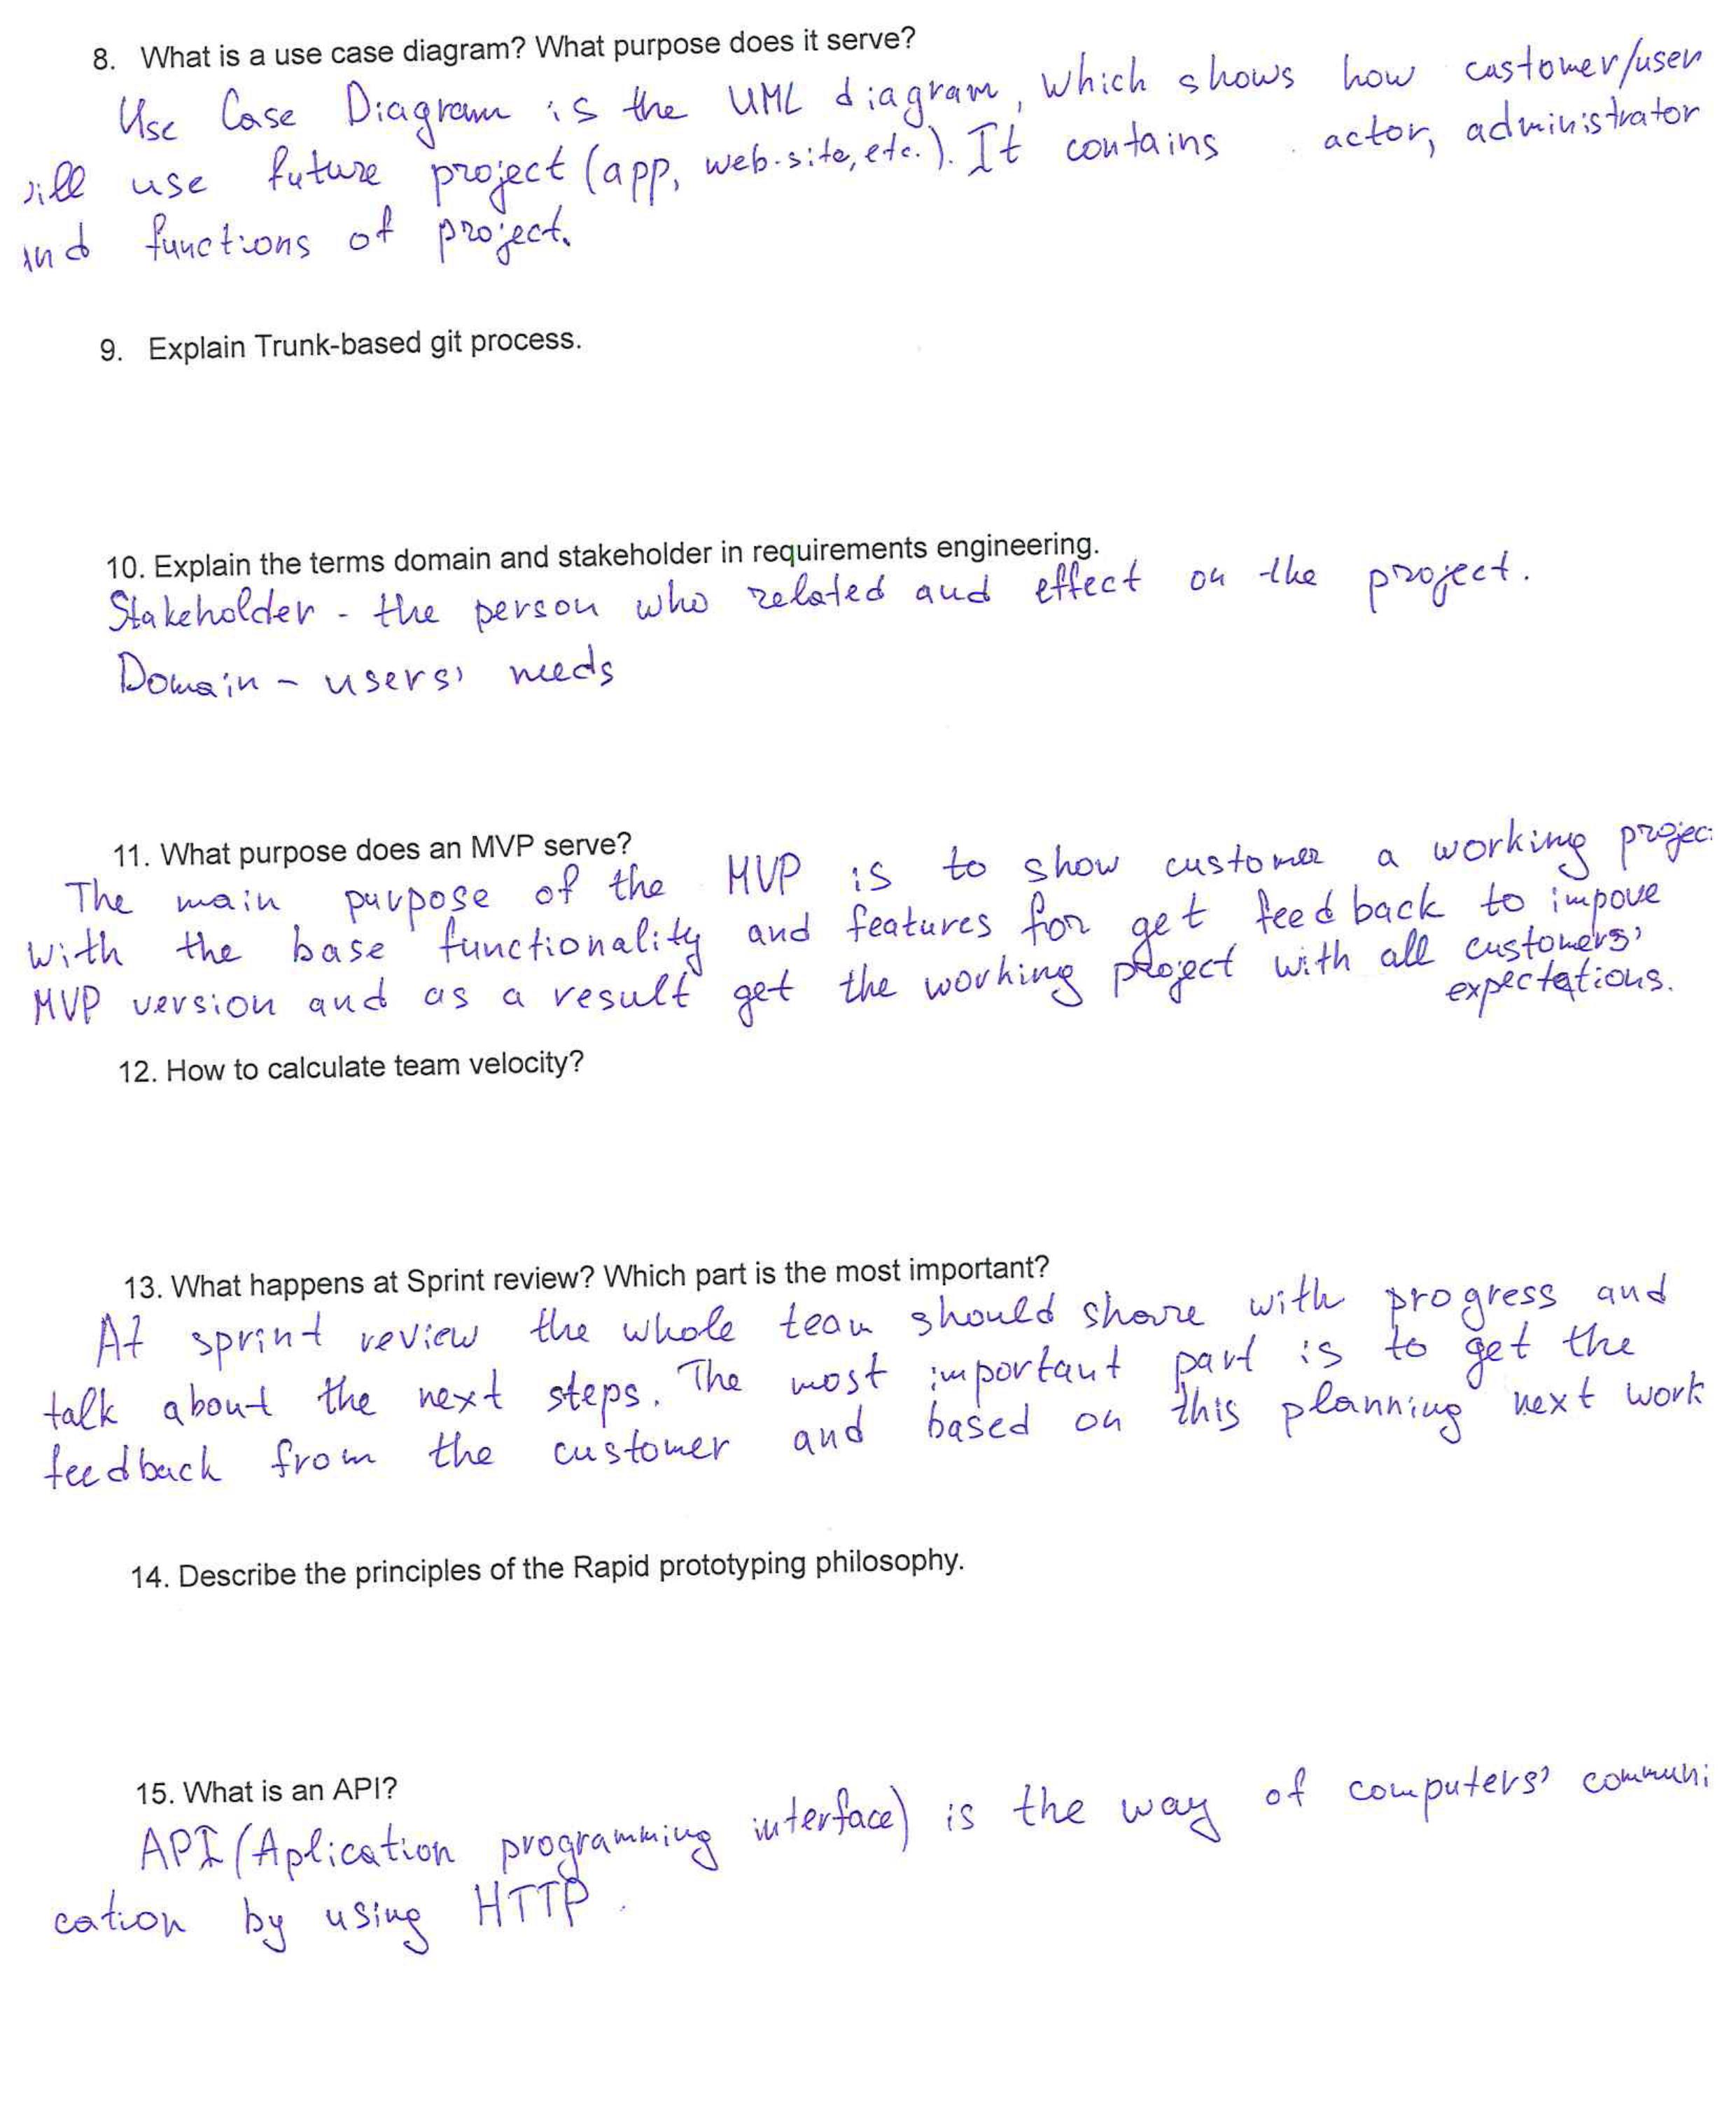 8. What is a use case diagram? What purpose does it serve?
Use Case Diagram is the UML diagram, which shows how customer/user
will use future project (app, web-site, etc.). It contains actor, administrator
and functions of project.
9. Explain Trunk-based git process.
10. Explain the terms domain and stakeholder in requirements engineering.
Stakeholder - the person who related and effect on the project.
Domain - users' needs
11. What purpose does an MVP serve?
The main purpose of the MVP is to show customer a working projec
with the base functionality and features for get feedback to impove
MVP version and as a result get the working project with all customers'
expectations.
12. How to calculate team velocity?
13. What happens at Sprint review? Which part is the most important?
At sprint review the whole team should share with progress and
talk about the next steps. The most important part is to get the
feedback from the customer and based on this planning next work
14. Describe the principles of the Rapid prototyping philosophy.
15. What is an API?
API (Aplication programming interface) is the way of computers' communi
cation by using HTTP.